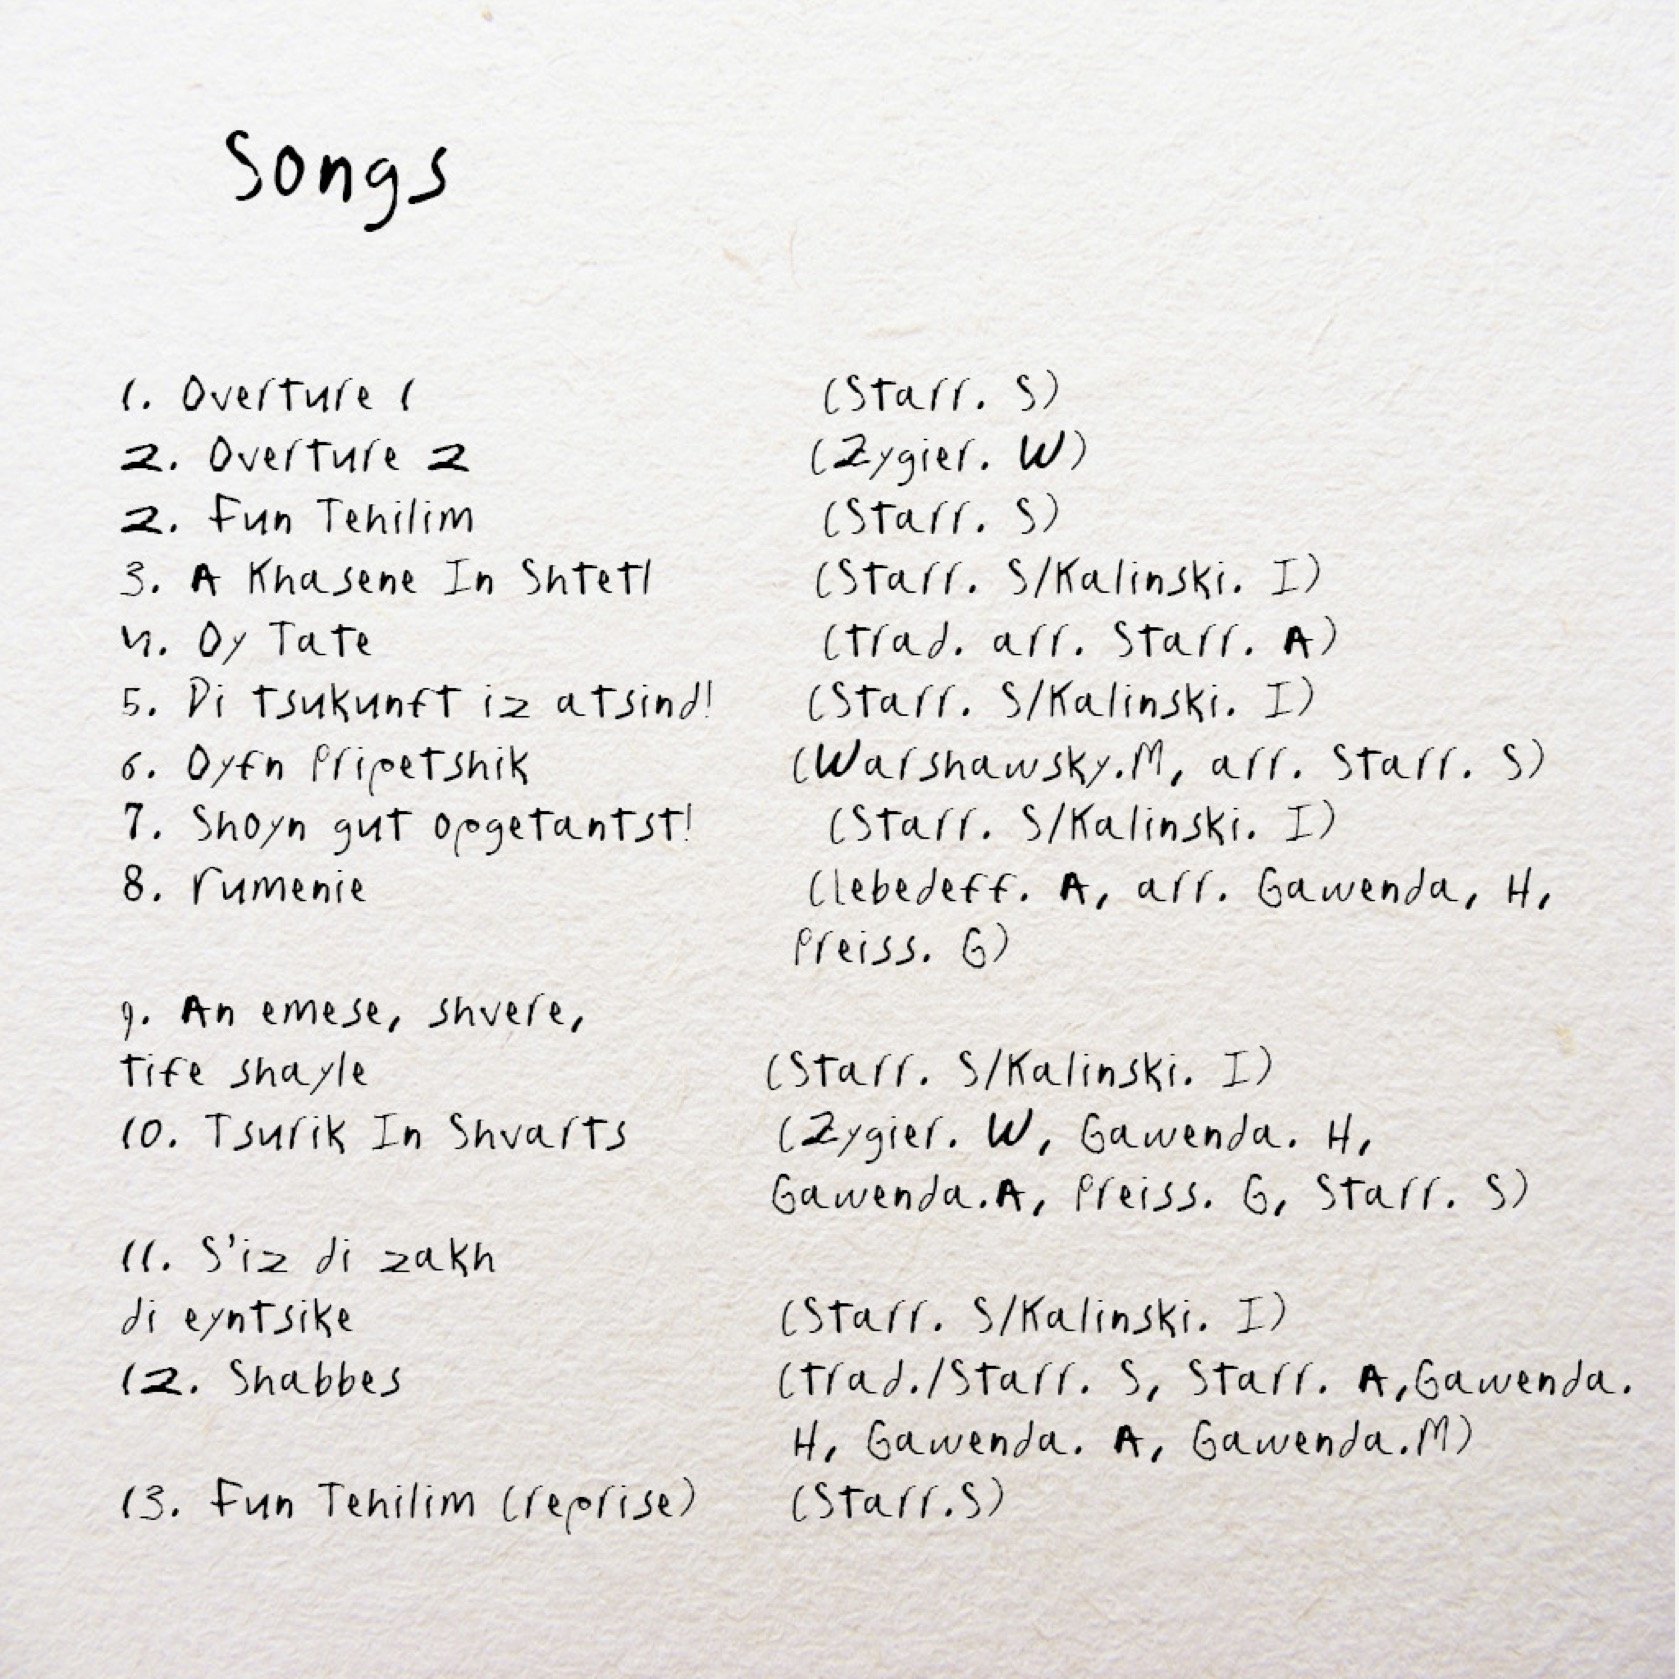 Songs
1. Overture 1 (Starr. S)
2. Overture 2 (Zygier. W)
2. Fun Tehilim (Starr. S)
3. A Khasene In Shtetl (Starr. S/Kalinski. I)
4. Oy Tate (trad. arr. Starr. A)
5. Di tsukunft iz atsind! (Starr. S/Kalinski. I)
6. Oyfn Pripetshik (Warshawsky.M, arr. Starr. S)
7. Shoyn gut opgetantst! (Starr. S/Kalinski. I)
8. rumenie (lebedeff. A, arr. Gawenda, H,
Preiss. G)
9. An emese, shvere,
tife shayle (Starr. S/Kalinski. I)
10. Tsurik In Shvarts (Zygier. W, Gawenda. H,
Gawenda.A, Preiss. G, Starr. S)
11. S'iz di zakh
di eyntsike (Starr. S/Kalinski. I)
12. Shabbes (trad./Starr. S, Starr. A,Gawenda.
H, Gawenda. A, Gawenda.M)
13. Fun Tehilim (reprise) (Starr.S)